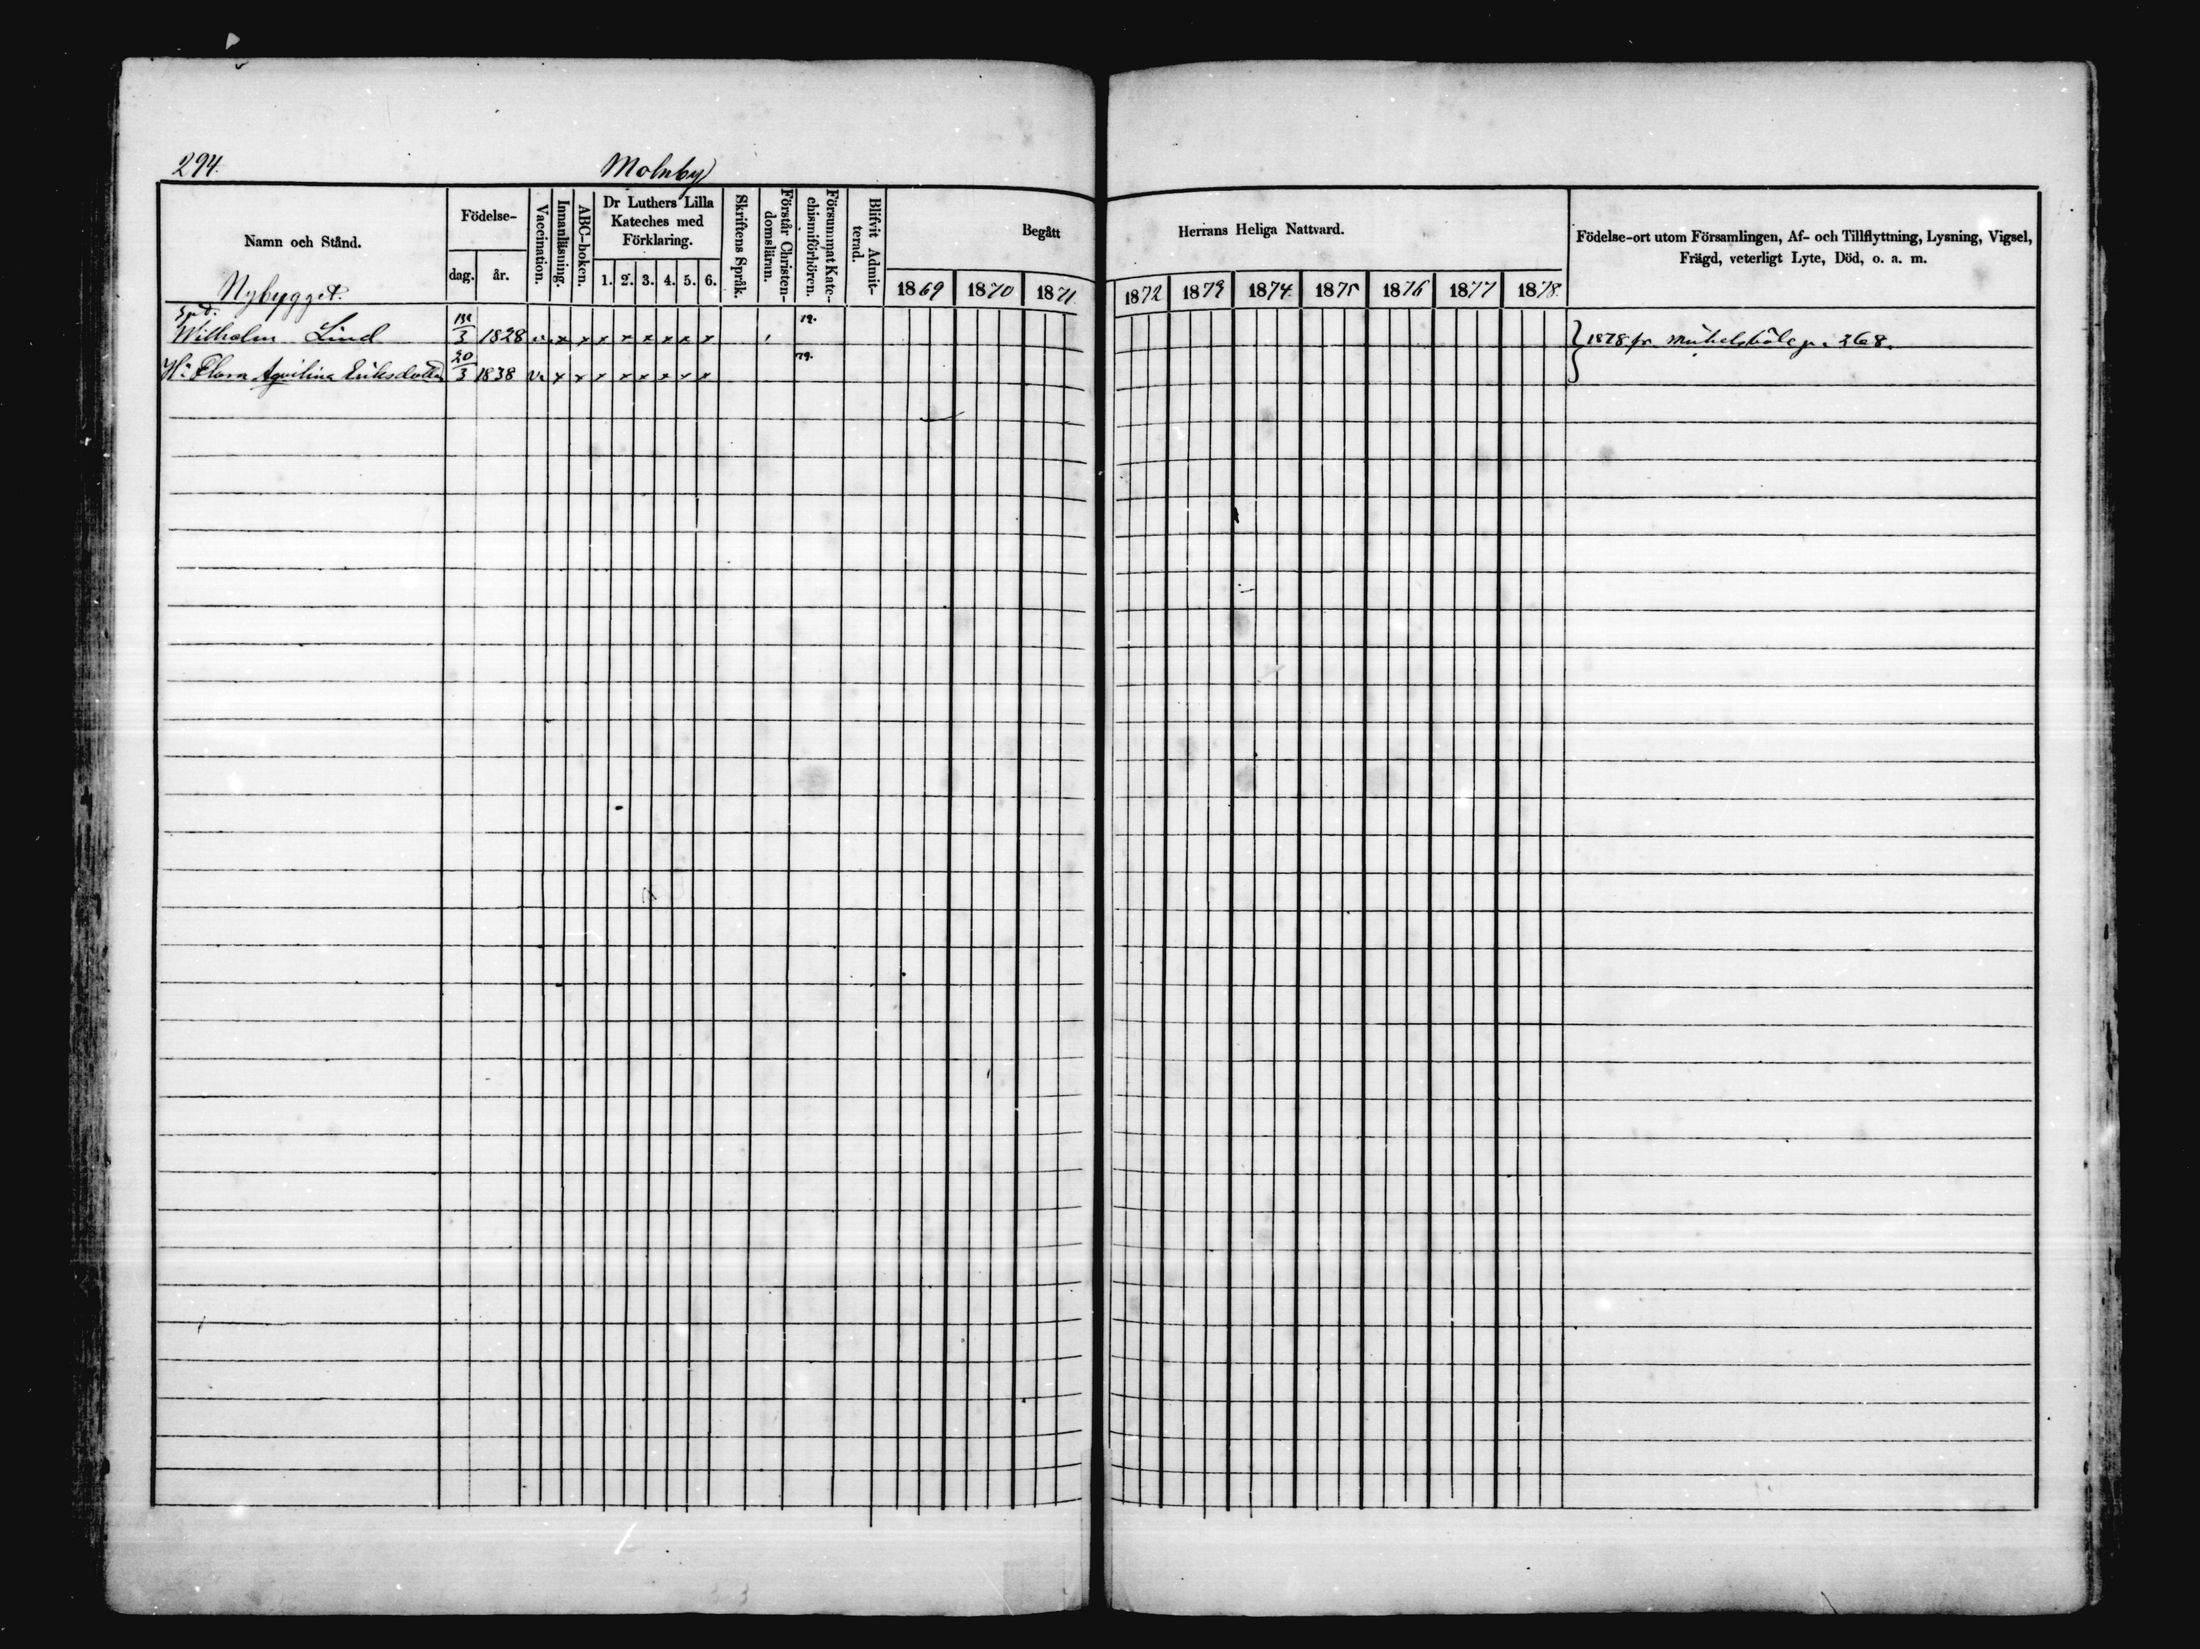 294.
Molnby
Namn och Stånd.
Födelse-
dag. år.
Vaccination.
Innanläsning.
ABC-boken.
Dr Luthers Lilla
Kateches med
Förklaring.
1. 2. 3. 4. 5. 6.
Skriftens Språk.
Förstår Christen-
domsläran.
Försummat Kate-
chismiförhören.
Blifvit Admit-
terad.
Begått Herrans Heliga Nattvard.
1869 1870 1871 1872 1873 1874 1875 1876 1877 1878.
Födelse-ort utom Församlingen, Af- och Tillflyttning, Lysning, Vigsel,
Frägd, veterligt Lyte, Död, o. a. m.
Nybygget.
Wilhelm Lind 3 1828 v. x x x x x x x x 79. 1878 fr. p. 268.
Hu Flora Aqvilina Eriksdotter 20/3 1838 v. x x x x x x x x 79.